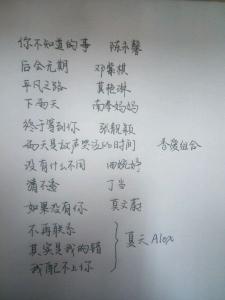 你不知道的事 陈永馨
后会无期 邓紫棋
平凡之路 莫艳琳
下雨天 南拳妈妈
终于等到你 张靓颖
雨天是放声哭泣的时间 香蜜组合
没有什么不同 曲婉婷
猜不透 丁当
如果没有你 莫文蔚
不再联系
其实是我的错
我配不上你
夏天Alex